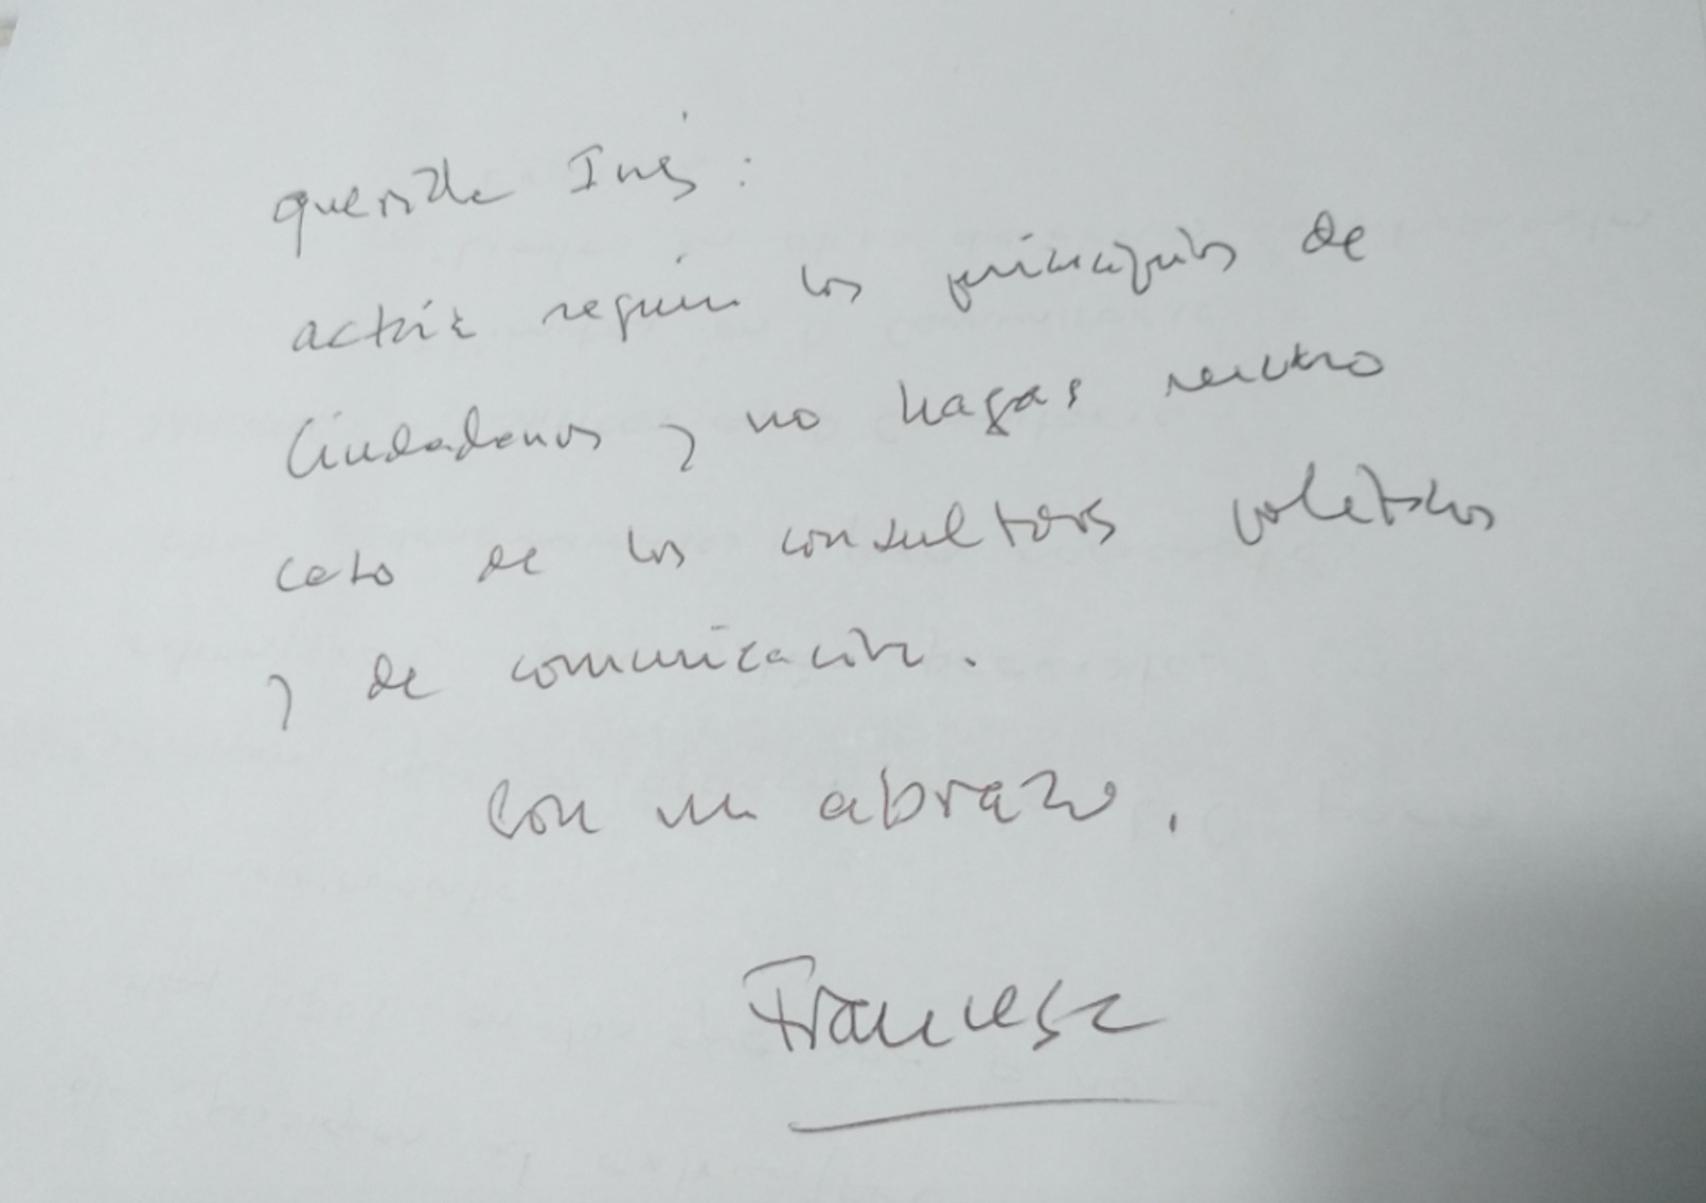 querida Inés:
actúa según los principios de
Ciudadanos y no hagas mucho
caso de los consultores políticos
y de comunicación.
Con un abrazo,
Francesc